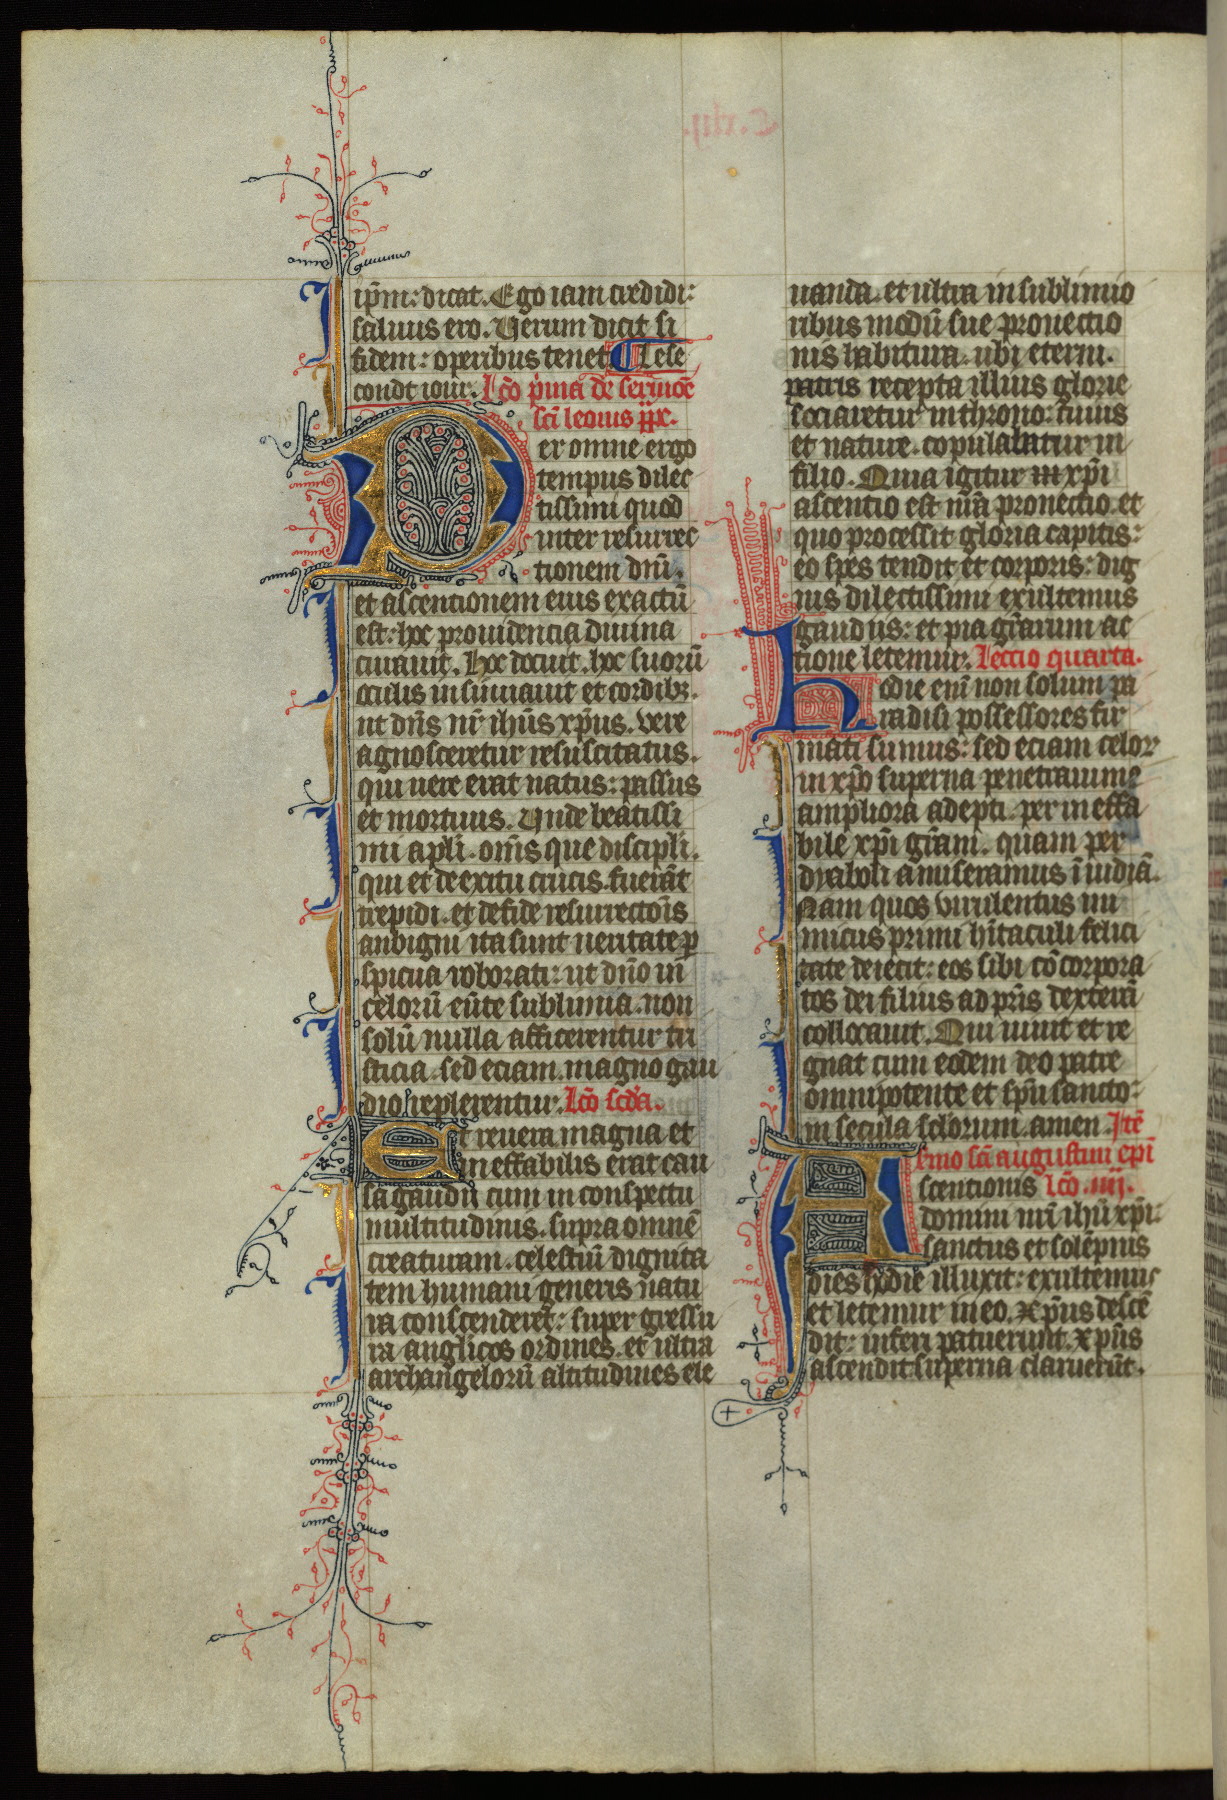 ip̄m: dicat. Ego iam credidi:
saluus ero. Uerum dicit si
fidem: operibus tenet
condt iour. lc̄o p̄ma de sermōe
sc̄i leonis p̄pe.
Per omne ergo
tempus dilec
tissimi quod
inter resurrec
tionem dn̄i.
et ascentionem eius exactū
est: hoc prouidencia diuina
curauit. hoc docuit. hoc suorū
oculis insinuauit et cordibꝫ.
ut dn̄s nr̄ ihūs xp̄us. vere
agnosceretur resuscitatus.
qui uere erat natus: passus
et mortuus. Unde beatissi
mi apl̄i. om̄s que discipli.
qui et de exitu crucis fuerāt
trepidi. et de fide resurrectōis
anbigui ita sunt ueritate ꝑ
spicua roborati: ut dn̄o in
celorū eūte sublimia. non
solū nulla afficerentur tri
sticia. sed eciam. magno gau
dio replerentur. lc̄o sc̄da.
Et reuera magna et
ineffabilis erat cau
sa gaudii cum in conspectu
multitudinis. supra omnē
creaturam. celestiū dignita
tem humani generis natu
ra conscenderet: super gressu
ra anglicos ordines. et ultra
archangelorū altitudines ele
uanda. et ultra in sublimio
ribus modū sue prouectio
nis habitura. ubi eterni.
patris recepta illius glorie
sociaretur in throno: cuius
et nature. copulabatur in
filio. Quia igitur in xp̄i
ascentio est nr̄a prouectio. et
quo processit gloria capitis:
eo spes tendit et corporis: dig
nis dilectissimi exultemus
gaudiis: et pia gr̄arum ac
tione letemur. lectio quarta.
Hodie enī non solum pa
radisi possessores fir
mati sumus: sed eciam celoꝝ
in xp̄o superna penetrauimꝰ
ampliora adepti. per ineffa
bile xp̄i grām. quam per
dyaboli amiseramus īuidiā.
Nam quos virulentus ini
micus primi hītaculi felici
tate deiecit: eos sibi cōcorpora
tos dei filius ad pr̄is dexterā
collocauit. Qui uiuit et re
gnat cum eodem deo patre
omnipotente et sp̄u sancto:
in secula sclorum. amen. Itē
sermo sc̄i augustini ep̄i
Ascentionis lc̄o .iiij.
domini nr̄i ihū xp̄i.
sanctus et solēpnis
dies hodie illuxit: exultemus
et letemur in eo. Xp̄us descē
dit: inferi patuerunt. Xp̄us
ascendit superna claruerūt.